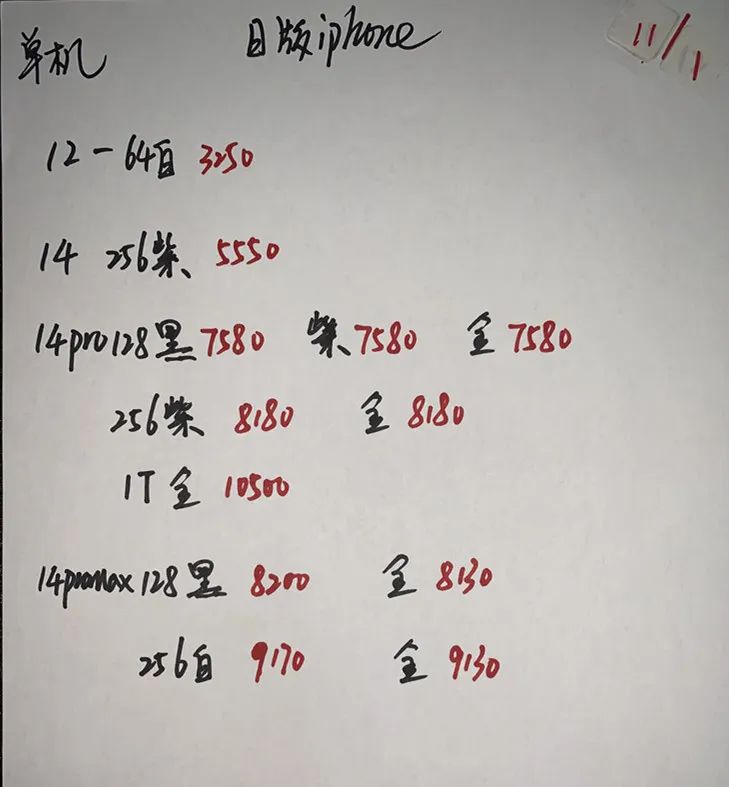 单机 日版iphone 11/1
12-64白 3250
14 256紫 5550
14pro128黑7580 紫7580 金7580
256紫 8180 金 8180
1T 金 10500
14promax128黑 8200 金 8130
256白 9170 金 9130